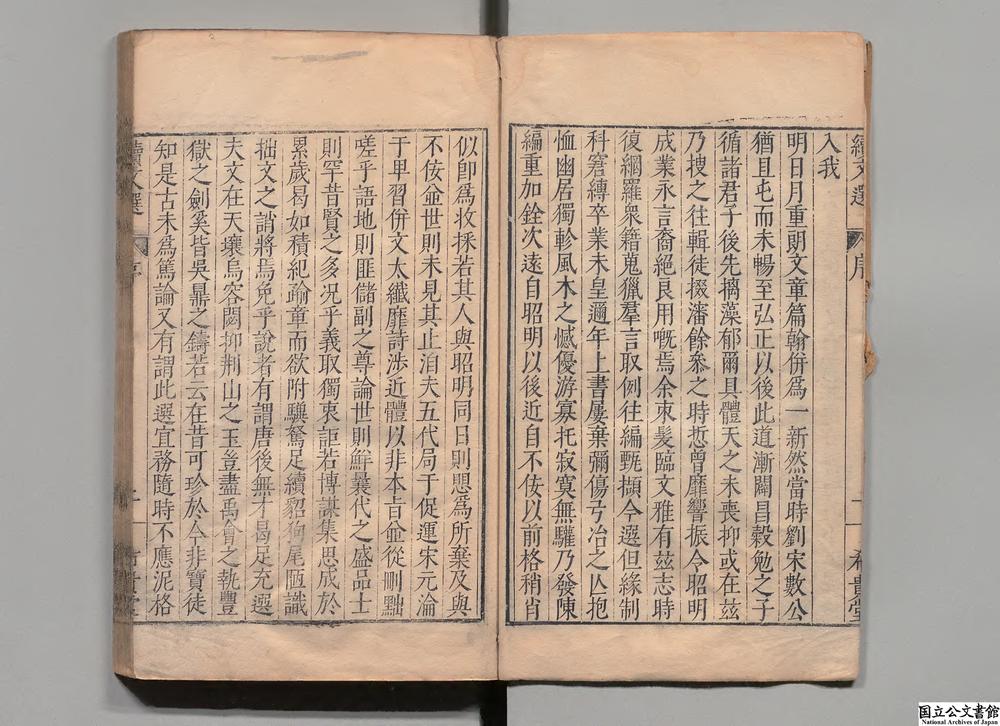 續文選
序
二
希貴堂
入我
明日月重朗文章篇翰併爲一新然當時劉宋數公
猶且屯而未暢至弘正以後此道漸闢昌穀勉之子
循諸君子後先摛藻郁爾具體天之未喪抑或在兹
乃搜之往輯徒掇瀋餘叅之時悊曾靡響振令昭明
成業永言裔絕良用嘅焉余束髮臨文雅有兹志時
復網羅衆籍蒐獵羣言取例往編甄擷今選但緣制
科窘縛卒業未皇邇年上書屢棄彌傷弓冶之亾抱
恤幽居獨軫風木之憾優游寡托寂寞無驩乃發陳
編重加銓次遠自昭明以後近自不佞以前格稍肖
似卽爲收採若其人與昭明同日則思爲所棄及與
不佞並世則未見其止洎夫五代局于促運宋元淪
于卑習併文太纖靡詩涉近體以非本旨並從刪黜
嗟乎語地則匪儲副之尊論世則鮮曩代之盛品士
則罕昔賢之多况乎義取獨衷詎若博謀集思成於
累歲曷如積紀踰章而欲附驥駑足續貂狗尾陋識
拙文之誚將焉免乎說者有謂唐後無才曷足充選
夫文在天壤烏容闕抑荆山之玉豈盡禹會之執豐
獄之劍奚皆吳鼎之鑄若云在昔可珍於今非寶徒
知是古未爲篤論又有謂此選宜務隨時不應泥格
續文選
序
希貴堂
国立公文書館
National Archives of Japan